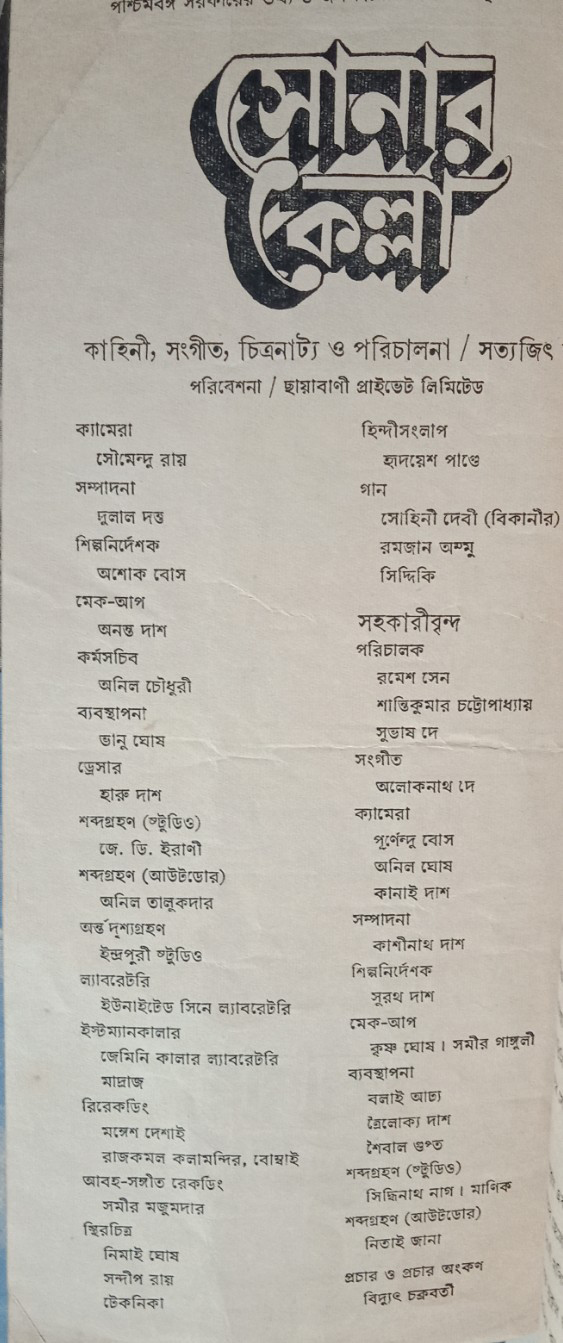 সোনার
কেল্লা
কাহিনী, সংগীত, চিত্রনাট্য ও পরিচালনা / সত্যজিৎ
পরিবেশনা / ছায়াবাণী প্রাইভেট লিমিটেড
ক্যামেরা
সৌমেন্দু রায়
সম্পাদনা
দুলাল দত্ত
শিল্পনির্দেশক
অশোক বোস
মেক-আপ
অনন্ত দাশ
কর্মসচিব
অনিল চৌধুরী
ব্যবস্থাপনা
ভানু ঘোষ
ড্রেসার
হারু দাশ
শব্দগ্রহণ (স্টুডিও)
জে. ডি. ইরাণী
শব্দগ্রহণ (আউটডোর)
অনিল তালুকদার
অন্তর্দৃশ্যগ্রহণ
ইন্দ্রপুরী স্টুডিও
ল্যাবরেটরি
ইউনাইটেড সিনে ল্যাবরেটরি
ইস্টম্যানকালার
জেমিনি কালার ল্যাবরেটরি
মাদ্রাজ
রিরেকর্ডিং
মঙ্গেশ দেশাই
রাজকমল কলামন্দির, বোম্বাই
আবহ-সঙ্গীত রেকর্ডিং
সমীর মজুমদার
স্থিরচিত্র
নিমাই ঘোষ
সন্দীপ রায়
টেকনিকা
হিন্দীসংলাপ
হৃদয়েশ পাণ্ডে
গান
সোহিনী দেবী (বিকানীর)
রমজান হাম্মু
সিদ্দিকি
সহকারীবৃন্দ
পরিচালক
রমেশ সেন
শান্তিকুমার চট্টোপাধ্যায়
সুভাষ দে
সংগীত
অলোকনাথ দে
ক্যামেরা
পূর্ণেন্দু বোস
অনিল ঘোষ
কানাই দাশ
সম্পাদনা
কাশীনাথ দাশ
শিল্পনির্দেশক
সুরথ দাশ
মেক-আপ
কৃষ্ণ ঘোষ । সমীর গাঙ্গুলী
ব্যবস্থাপনা
বলাই আঢ্য
ত্রৈলোক্য দাশ
শৈবাল গুপ্ত
শব্দগ্রহণ (স্টুডিও)
সিদ্ধিনাথ নাগ । মাণিক
শব্দগ্রহণ (আউটডোর)
নিতাই জানা
প্রচার ও প্রচার অংকণ
বিদ্যুৎ চক্রবর্তী